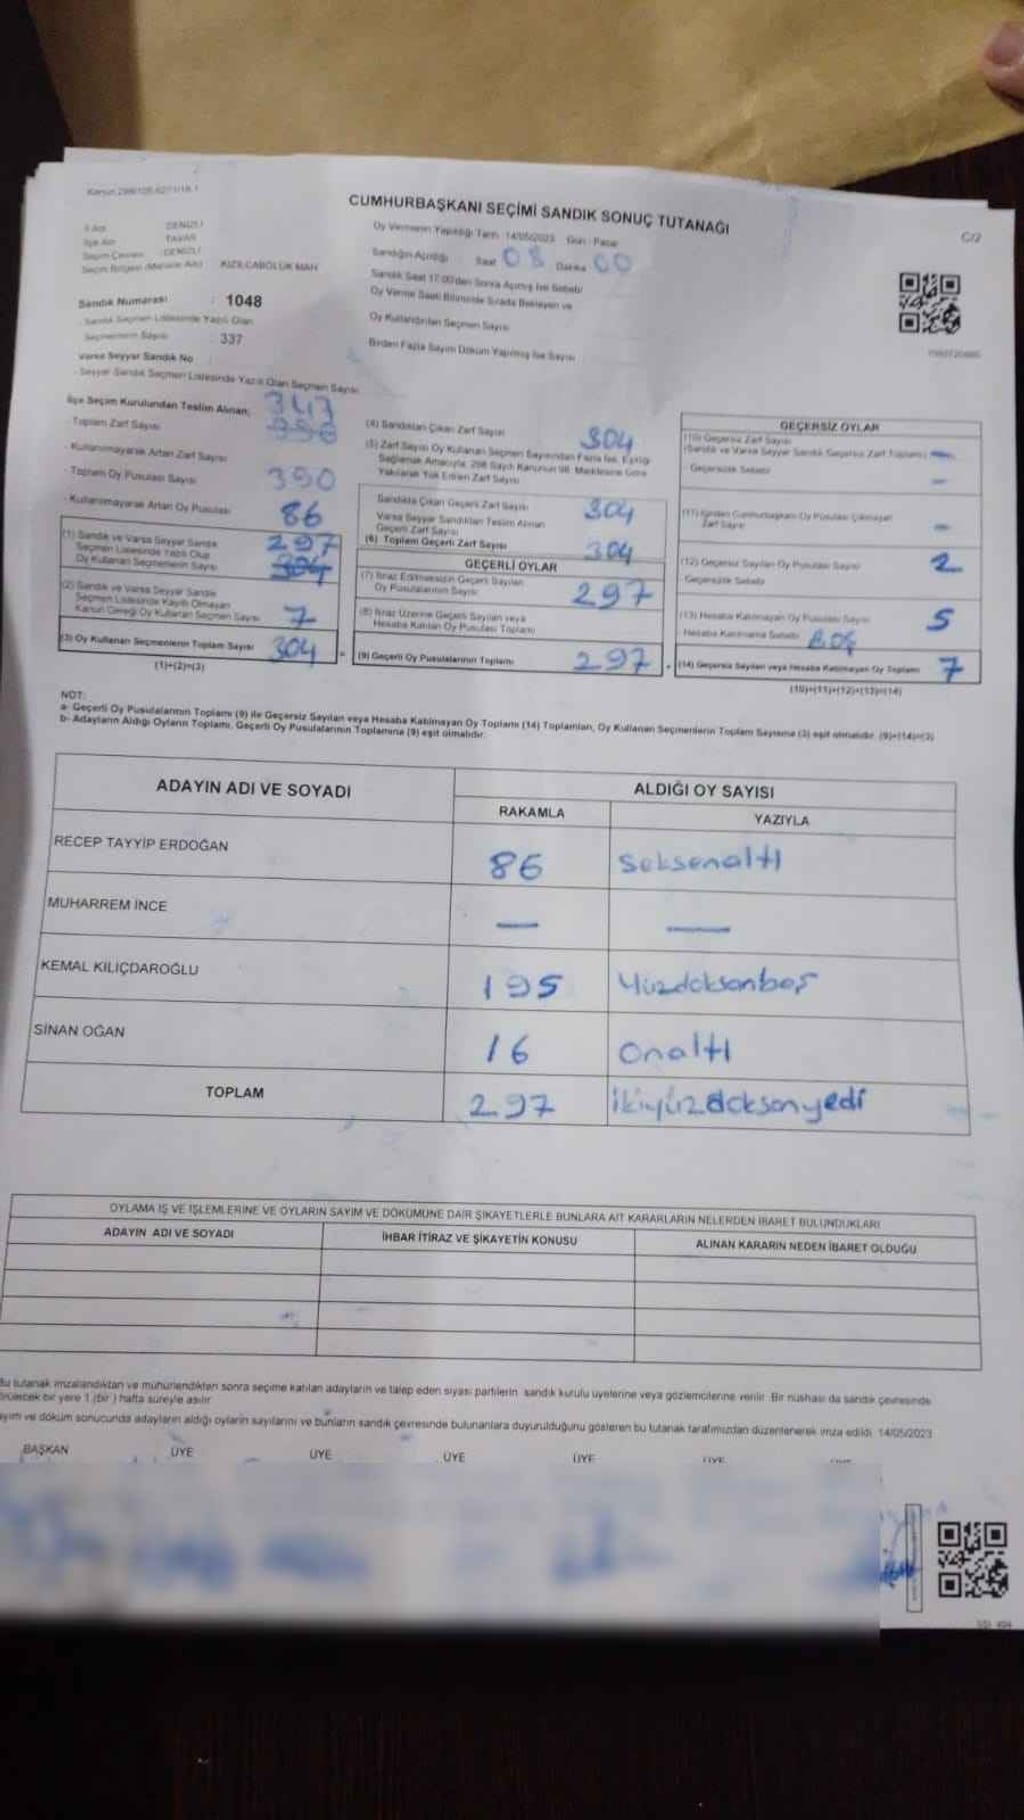 CUMHURBAŞKANI SEÇİMİ SANDIK SONUÇ TUTANAĞI
C/2
İl Adı DENİZLİ
İlçe Adı TAVAS
Seçim Çevresi DENİZLİ
Seçim Bölgesi (Mahalle Adı) KIZILCABÖLÜK MAH
Oy Vermenin Yapıldığı Tarih 14/05/2023 Gün Pazar
Sandığın Açıldığı Saat 08 Dakika 00
Sandık Saat 17:00'den Sonra Açılmış İse Sebebi
Oy Verme Saati Bitiminde Sırada Bekleyen ve
Oy Kullandırılan Seçmen Sayısı
Birden Fazla Sayım Döküm Yapılmış İse Sayısı
Sandık Numarası : 1048
Sandık Seçmen Listesinde Yazılı Olan
Seçmenlerin Sayısı : 337
Varsa Seyyar Sandık No
- Seyyar Sandık Seçmen Listesinde Yazılı Olan Seçmen Sayısı
İlçe Seçim Kurulundan Teslim Alınan;
Toplam Zarf Sayısı
- Kullanılmayarak Artan Zarf Sayısı
Toplam Oy Pusulası Sayısı 390
- Kullanılmayarak Artan Oy Pusulası 86
(1) Sandık ve Varsa Seyyar Sandık
Seçmen Listesinde Yazılı Olup
Oy Kullanan Seçmenlerin Sayısı
297
304
(2) Sandık ve Varsa Seyyar Sandık
Seçmen Listesinde Kayıtlı Olmayan
Kanun Gereği Oy Kullanan Seçmen Sayısı 7
(3) Oy Kullanan Seçmenlerin Toplam Sayısı 304
(1)+(2)=(3)
(4) Sandıktan Çıkan Zarf Sayısı 304
(5) Zarf Sayısı Oy Kullanan Seçmen Sayısından Fazla İse, Eşitliği
Sağlamak Amacıyla, 298 Sayılı Kanunun 98. Maddesine Göre
Yakılarak Yok Edilen Zarf Sayısı
Sandıkta Çıkan Geçerli Zarf Sayısı 304
Varsa Seyyar Sandıktan Teslim Alınan
Geçerli Zarf Sayısı
(6) Toplam Geçerli Zarf Sayısı 304
GEÇERLİ OYLAR
(7) İtiraz Edilmeksizin Geçerli Sayılan
Oy Pusulalarının Sayısı 297
(8) İtiraz Üzerine Geçerli Sayılan veya
Hesaba Katılan Oy Pusulası Toplamı
(9) Geçerli Oy Pusulalarının Toplamı 297
GEÇERSİZ OYLAR
(10) Geçersiz Zarf Sayısı
(Sandık ve Varsa Seyyar Sandık Geçersiz Zarf Toplamı) —
Geçersizlik Sebebi —
(11) İçinden Cumhurbaşkanı Oy Pusulası Çıkmayan
Zarf Sayısı —
(12) Geçersiz Sayılan Oy Pusulası Sayısı 2
Geçersizlik Sebebi
(13) Hesaba Katılmayan Oy Pusulası Sayısı 5
Hesaba Katılmama Sebebi BOŞ
(14) Geçersiz Sayılan veya Hesaba Katılmayan Oy Toplamı 7
(10)+(11)+(12)+(13)=(14)
NOT:
a- Geçerli Oy Pusulalarının Toplamı (9) ile Geçersiz Sayılan veya Hesaba Katılmayan Oy Toplamı (14) Toplamları, Oy Kullanan Seçmenlerin Toplam Sayısına (3) eşit olmalıdır. (9)+(14)=(3)
b- Adayların Aldığı Oyların Toplamı, Geçerli Oy Pusulalarının Toplamına (9) eşit olmalıdır.
ADAYIN ADI VE SOYADI
ALDIĞI OY SAYISI
RAKAMLA YAZIYLA
RECEP TAYYİP ERDOĞAN 86 Seksenaltı
MUHARREM İNCE — —
KEMAL KILIÇDAROĞLU 195 Yüzdoksanbeş
SİNAN OĞAN 16 Onaltı
TOPLAM 297 İkiyüzdoksanyedi
OYLAMA İŞ VE İŞLEMLERİNE VE OYLARIN SAYIM VE DÖKÜMÜNE DAİR ŞİKAYETLERLE BUNLARA AİT KARARLARIN NELERDEN İBARET BULUNDUKLARI
ADAYIN ADI VE SOYADI İHBAR İTİRAZ VE ŞİKAYETİN KONUSU ALINAN KARARIN NEDEN İBARET OLDUĞU
Bu tutanak imzalandıktan ve mühürlendikten sonra seçime katılan adayların ve talep eden siyasi partilerin sandık kurulu üyelerine veya gözlemcilerine verilir. Bir nüshası da sandık çevresinde
görülecek bir yere 1 (bir) hafta süreyle asılır.
Sayım ve döküm sonucunda adayların aldığı oyların sayılarını ve bunların sandık çevresinde bulunanlara duyurulduğunu gösteren bu tutanak tarafımızdan düzenlenerek imza edildi. 14/05/2023
BAŞKAN ÜYE ÜYE ÜYE ÜYE ÜYE